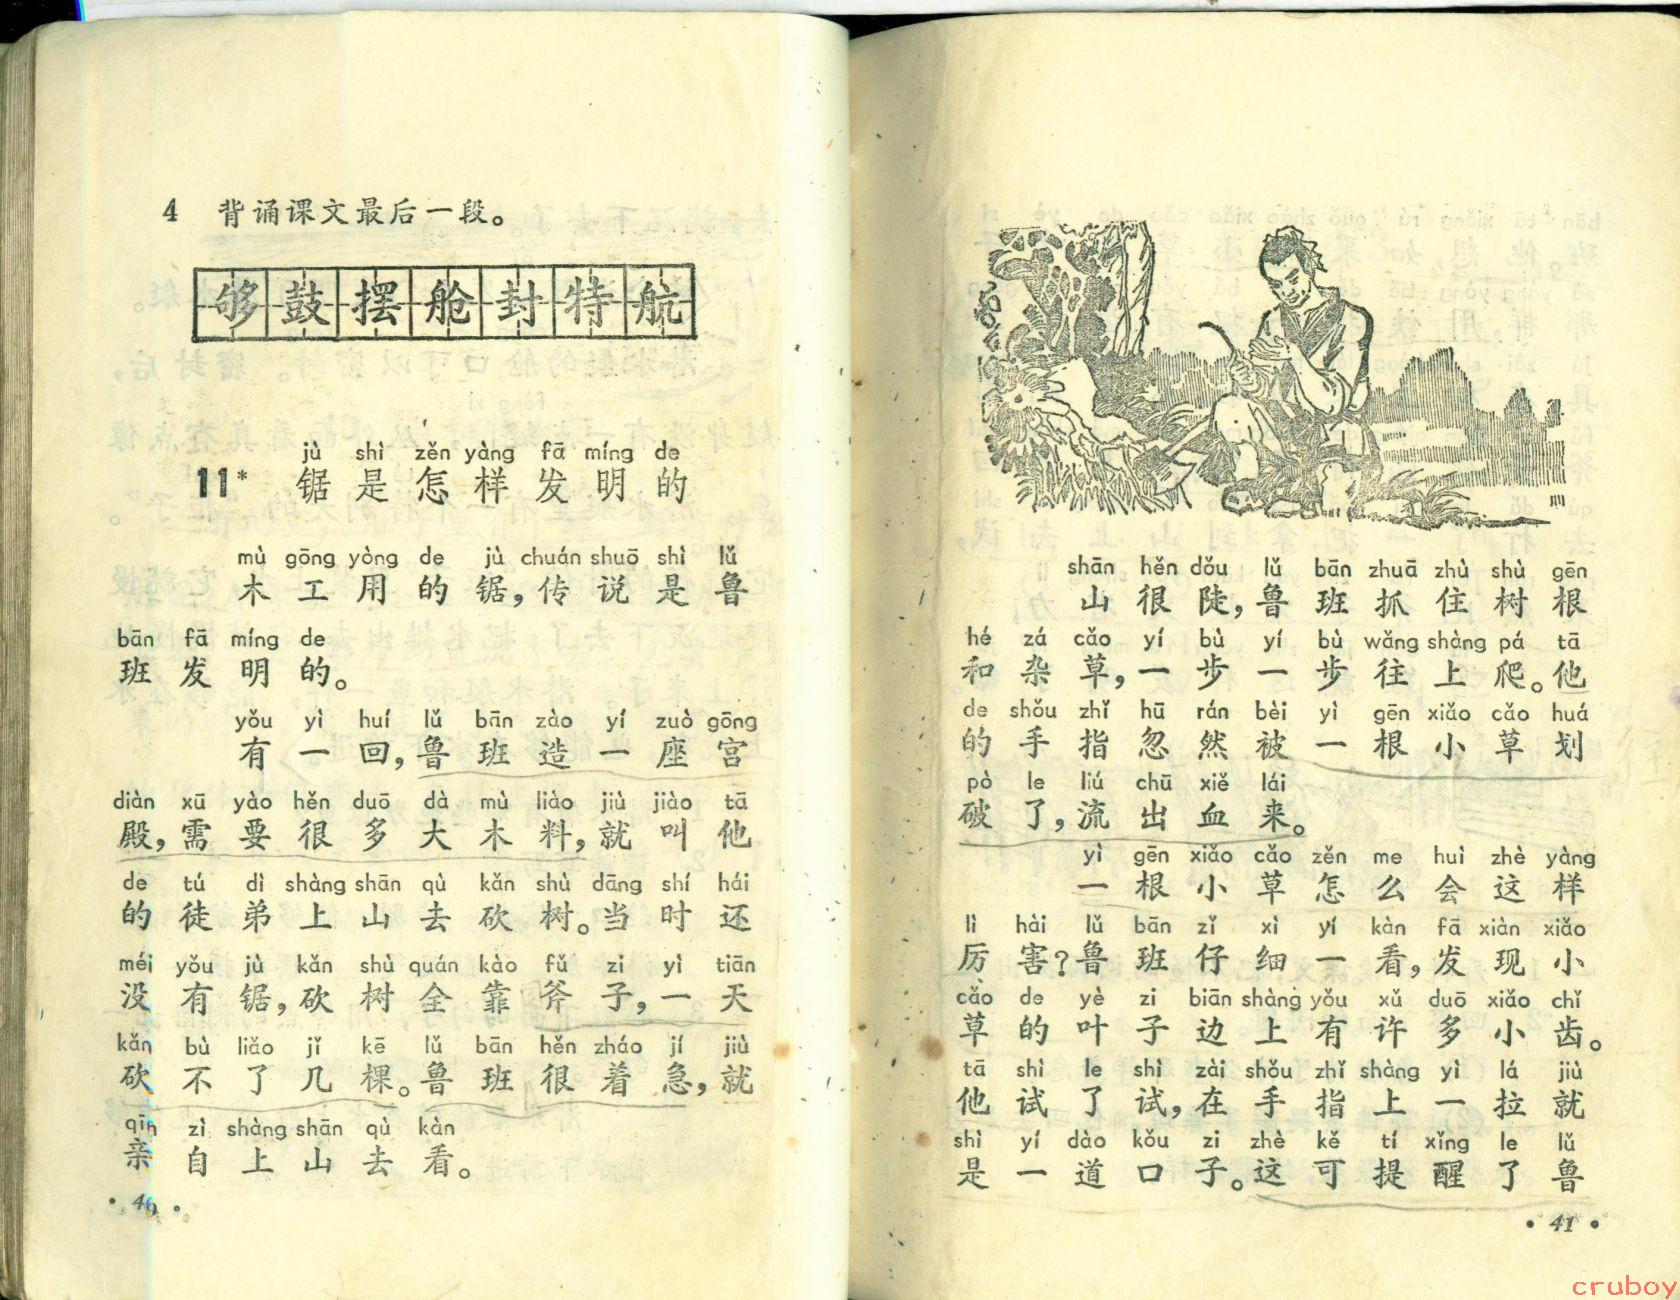 4 背诵课文最后一段。
够鼓摆舱封特航
jù shì zěn yàng fā míng de
11* 锯是怎样发明的
mù gōng yòng de jù chuán shuō shì lǔ
木工用的锯,传说是鲁
bān fā míng de
班发明的。
yǒu yì huí lǔ bān zào yí zuò gōng
有一回,鲁班造一座宫
diàn xū yào hěn duō dà mù liào jiù jiào tā
殿,需要很多大木料,就叫他
de tú dì shàng shān qù kǎn shù dāng shí hái
的徒弟上山去砍树。当时还
méi yǒu jù kǎn shù quán kào fǔ zi yì tiān
没有锯,砍树全靠斧子,一天
kǎn bù liǎo jǐ kē lǔ bān hěn zháo jí jiù
砍不了几棵。鲁班很着急,就
qīn zì shàng shān qù kàn
亲自上山去看。
• 40 •
shān hěn dǒu lǔ bān zhuā zhù shù gēn
山很陡,鲁班抓住树根
hé zá cǎo yí bù yí bù wǎng shàng pá tā
和杂草,一步一步往上爬。他
de shǒu zhǐ hū rán bèi yì gēn xiǎo cǎo huá
的手指忽然被一根小草划
pò le liú chū xiě lái
破了,流出血来。
yì gēn xiǎo cǎo zěn me huì zhè yàng
一根小草怎么会这样
lì hài lǔ bān zǐ xì yí kàn fā xiàn xiǎo
厉害?鲁班仔细一看,发现小
cǎo de yè zi biān shàng yǒu xǔ duō xiǎo chǐ
草的叶子边上有许多小齿。
tā shì le shì zài shǒu zhǐ shàng yì lá jiù
他试了试,在手指上一拉就
shì yí dào kǒu zi zhè kě tí xǐng le lǔ
是一道口子。这可提醒了鲁
• 41 •
cruboy